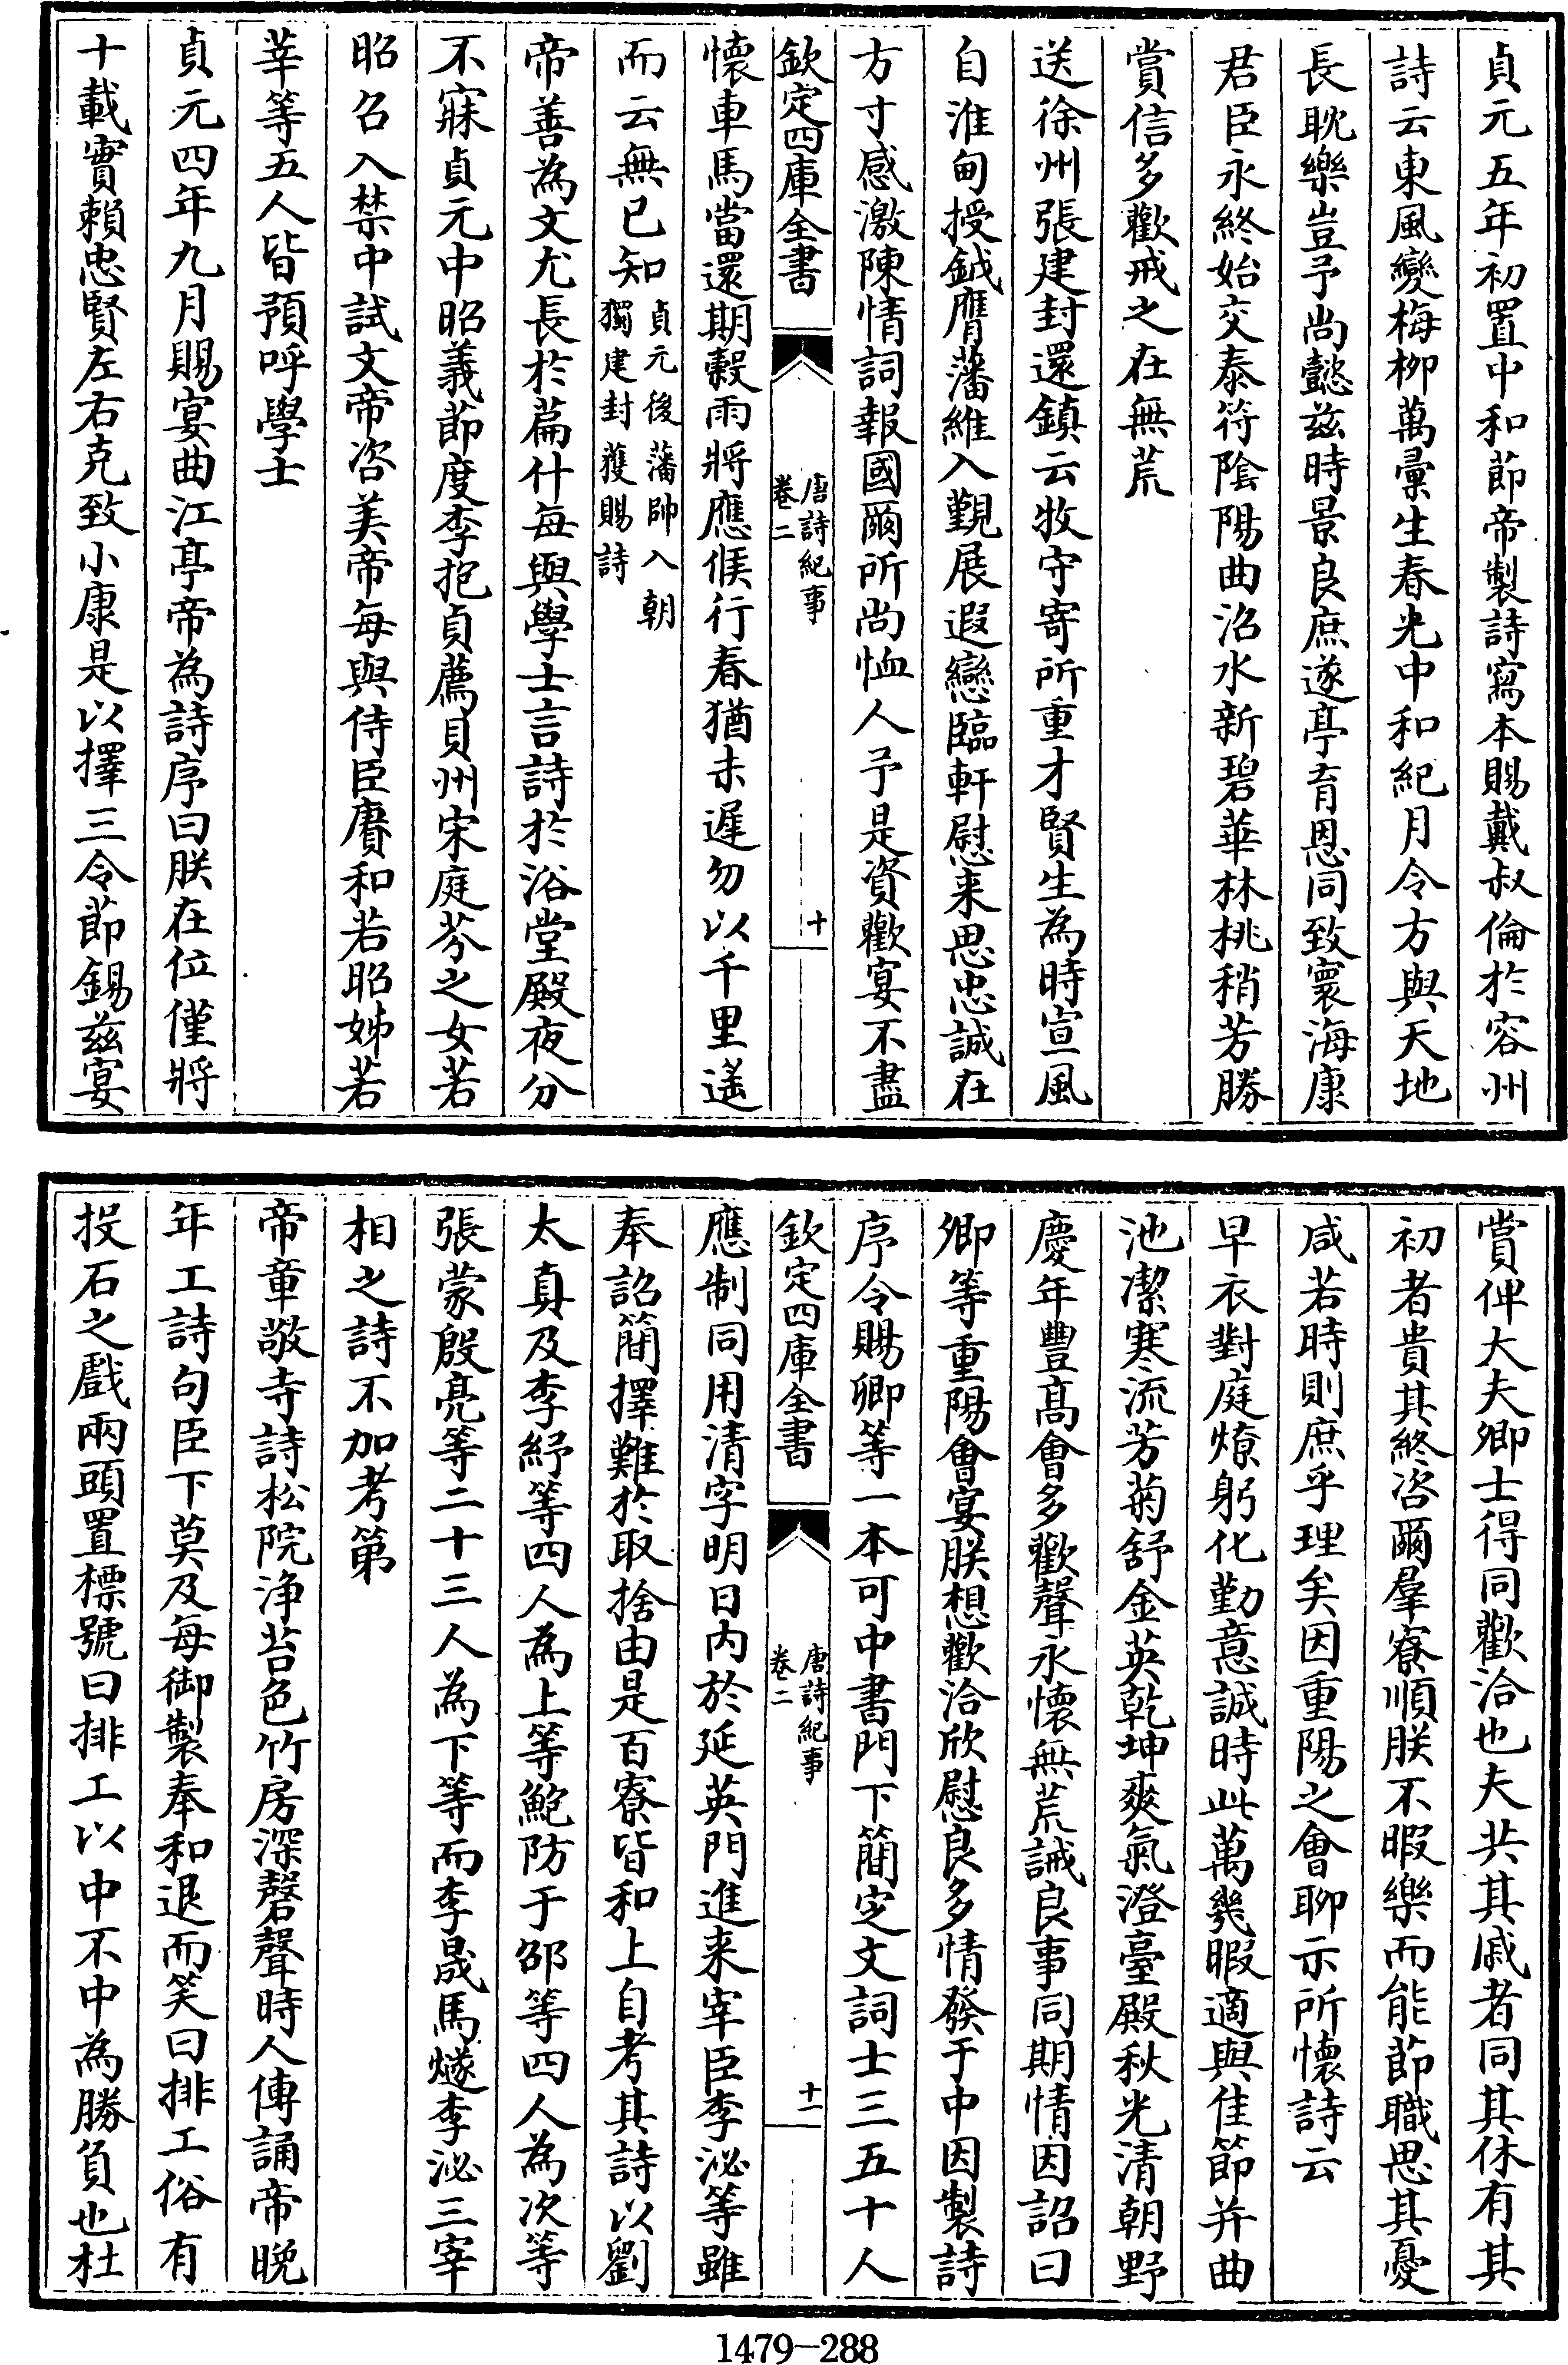 貞元五年初置中和節帝製詩寫本賜戴叔倫於容州
詩云東風變梅柳萬彙生春光中和紀月令方與天地
長耽樂豈予尚懿兹時景良庶遂亭育恩同致寰海康
君臣永終始交泰符陰陽曲沼水新碧華林桃稍芳勝
賞信多歡戒之在無荒
送徐州張建封還鎮云牧守寄所重才賢生為時宣風
自淮甸授鉞膺藩維入覲展遐戀臨軒慰来思忠誠在
方寸感激陳情詞報國爾所尚恤人予是資歡宴不盡
欽定四庫全書
唐詩紀事
卷二
十
懷車馬當還期穀雨將應候行春猶未遲勿以千里遥
而云無已知貞元後藩帥入朝
獨建封獲賜詩
帝善為文尤長於篇什每與學士言詩於浴堂殿夜分
不寐貞元中昭義節度李抱貞薦貝州宋庭芬之女若
昭召入禁中試文帝咨美帝每與侍臣賡和若昭姊若
莘等五人皆預呼學士
貞元四年九月賜宴曲江亭帝為詩序曰朕在位僅將
十載實賴忠賢左右克致小康是以擇三令節錫兹宴
賞俾大夫卿士得同歡洽也夫共其戚者同其休有其
初者貴其終咨爾羣寮順朕不暇樂而能節職思其憂
咸若時則庶乎理矣因重陽之會聊示所懷詩云
早衣對庭燎躬化勤意誠時此萬幾暇適與佳節并曲
池潔寒流芳菊舒金英乾坤爽氣澄臺殿秋光清朝野
慶年豐髙會多歡聲永懷無荒誡良事同期情因詔曰
卿等重陽會宴朕想歡洽欣慰良多情發于中因製詩
序令賜卿等一本可中書門下簡定文詞士三五十人
欽定四庫全書
唐詩紀事
卷二
十一
應制同用清字明日内於延英門進来宰臣李泌等雖
奉詔簡擇難於取捨由是百寮皆和上自考其詩以劉
太真及李紓等四人為上等鮑防于邵等四人為次等
張蒙殷亮等二十三人為下等而李晟馬燧李泌三宰
相之詩不加考第
帝章敬寺詩松院浄苔色竹房深磬聲時人傳誦帝晚
年工詩句臣下莫及每御製奉和退而笑曰排工俗有
投石之戲兩頭置標號曰排工以中不中為勝負也杜
1479—288